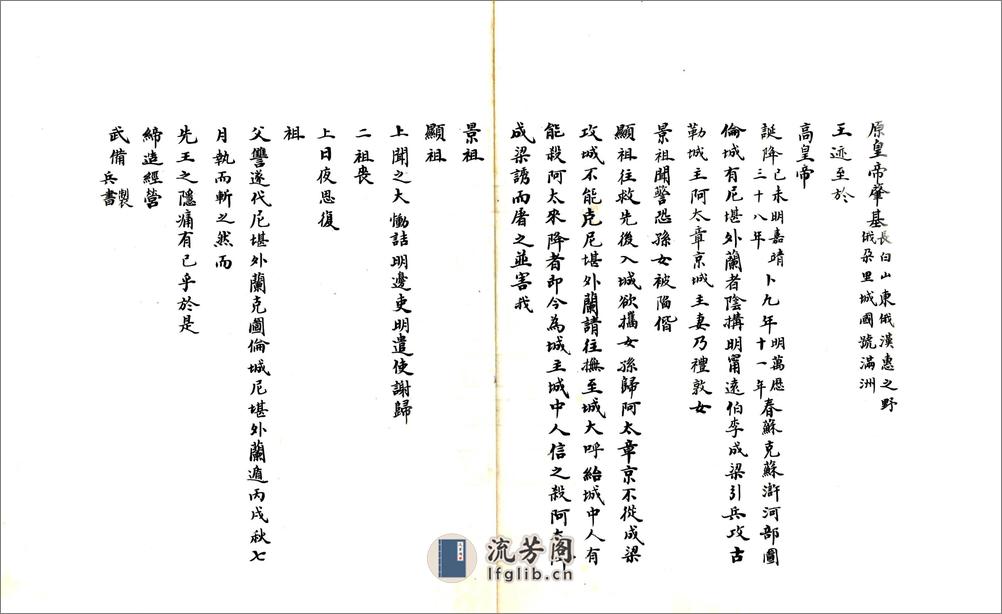 原皇帝肇基長白山東俄漢惠之野
俄朵里城國號滿洲
王迹至於
高皇帝
誕降己未明嘉靖三十八年卜九年明萬歷十一年春蘇克蘇滸河部圖
倫城有尼堪外蘭者陰搆明甯遠伯李成梁引兵攻古
勒城主阿太章京城主妻乃禮敦女
景祖聞警恐孫女被陷偕
顯祖往救先後入城欲攜女孫歸阿太章京不從成梁
攻城不能克尼堪外蘭請往撫至城大呼紿城中人有
能殺阿太來降者即令為城主城中人信之殺阿太
成梁誘而屠之並害我
景祖
顯祖
上聞之大慟詰明邊吏明遣使謝歸
二祖喪
上日夜思復
祖
父讐遂伐尼堪外蘭克圖倫城尼堪外蘭遁丙戌秋七
月執而斬之然而
先王之隱痛有已乎於是
締造經營
武備兵書製
流芳阁
lfglib.cn